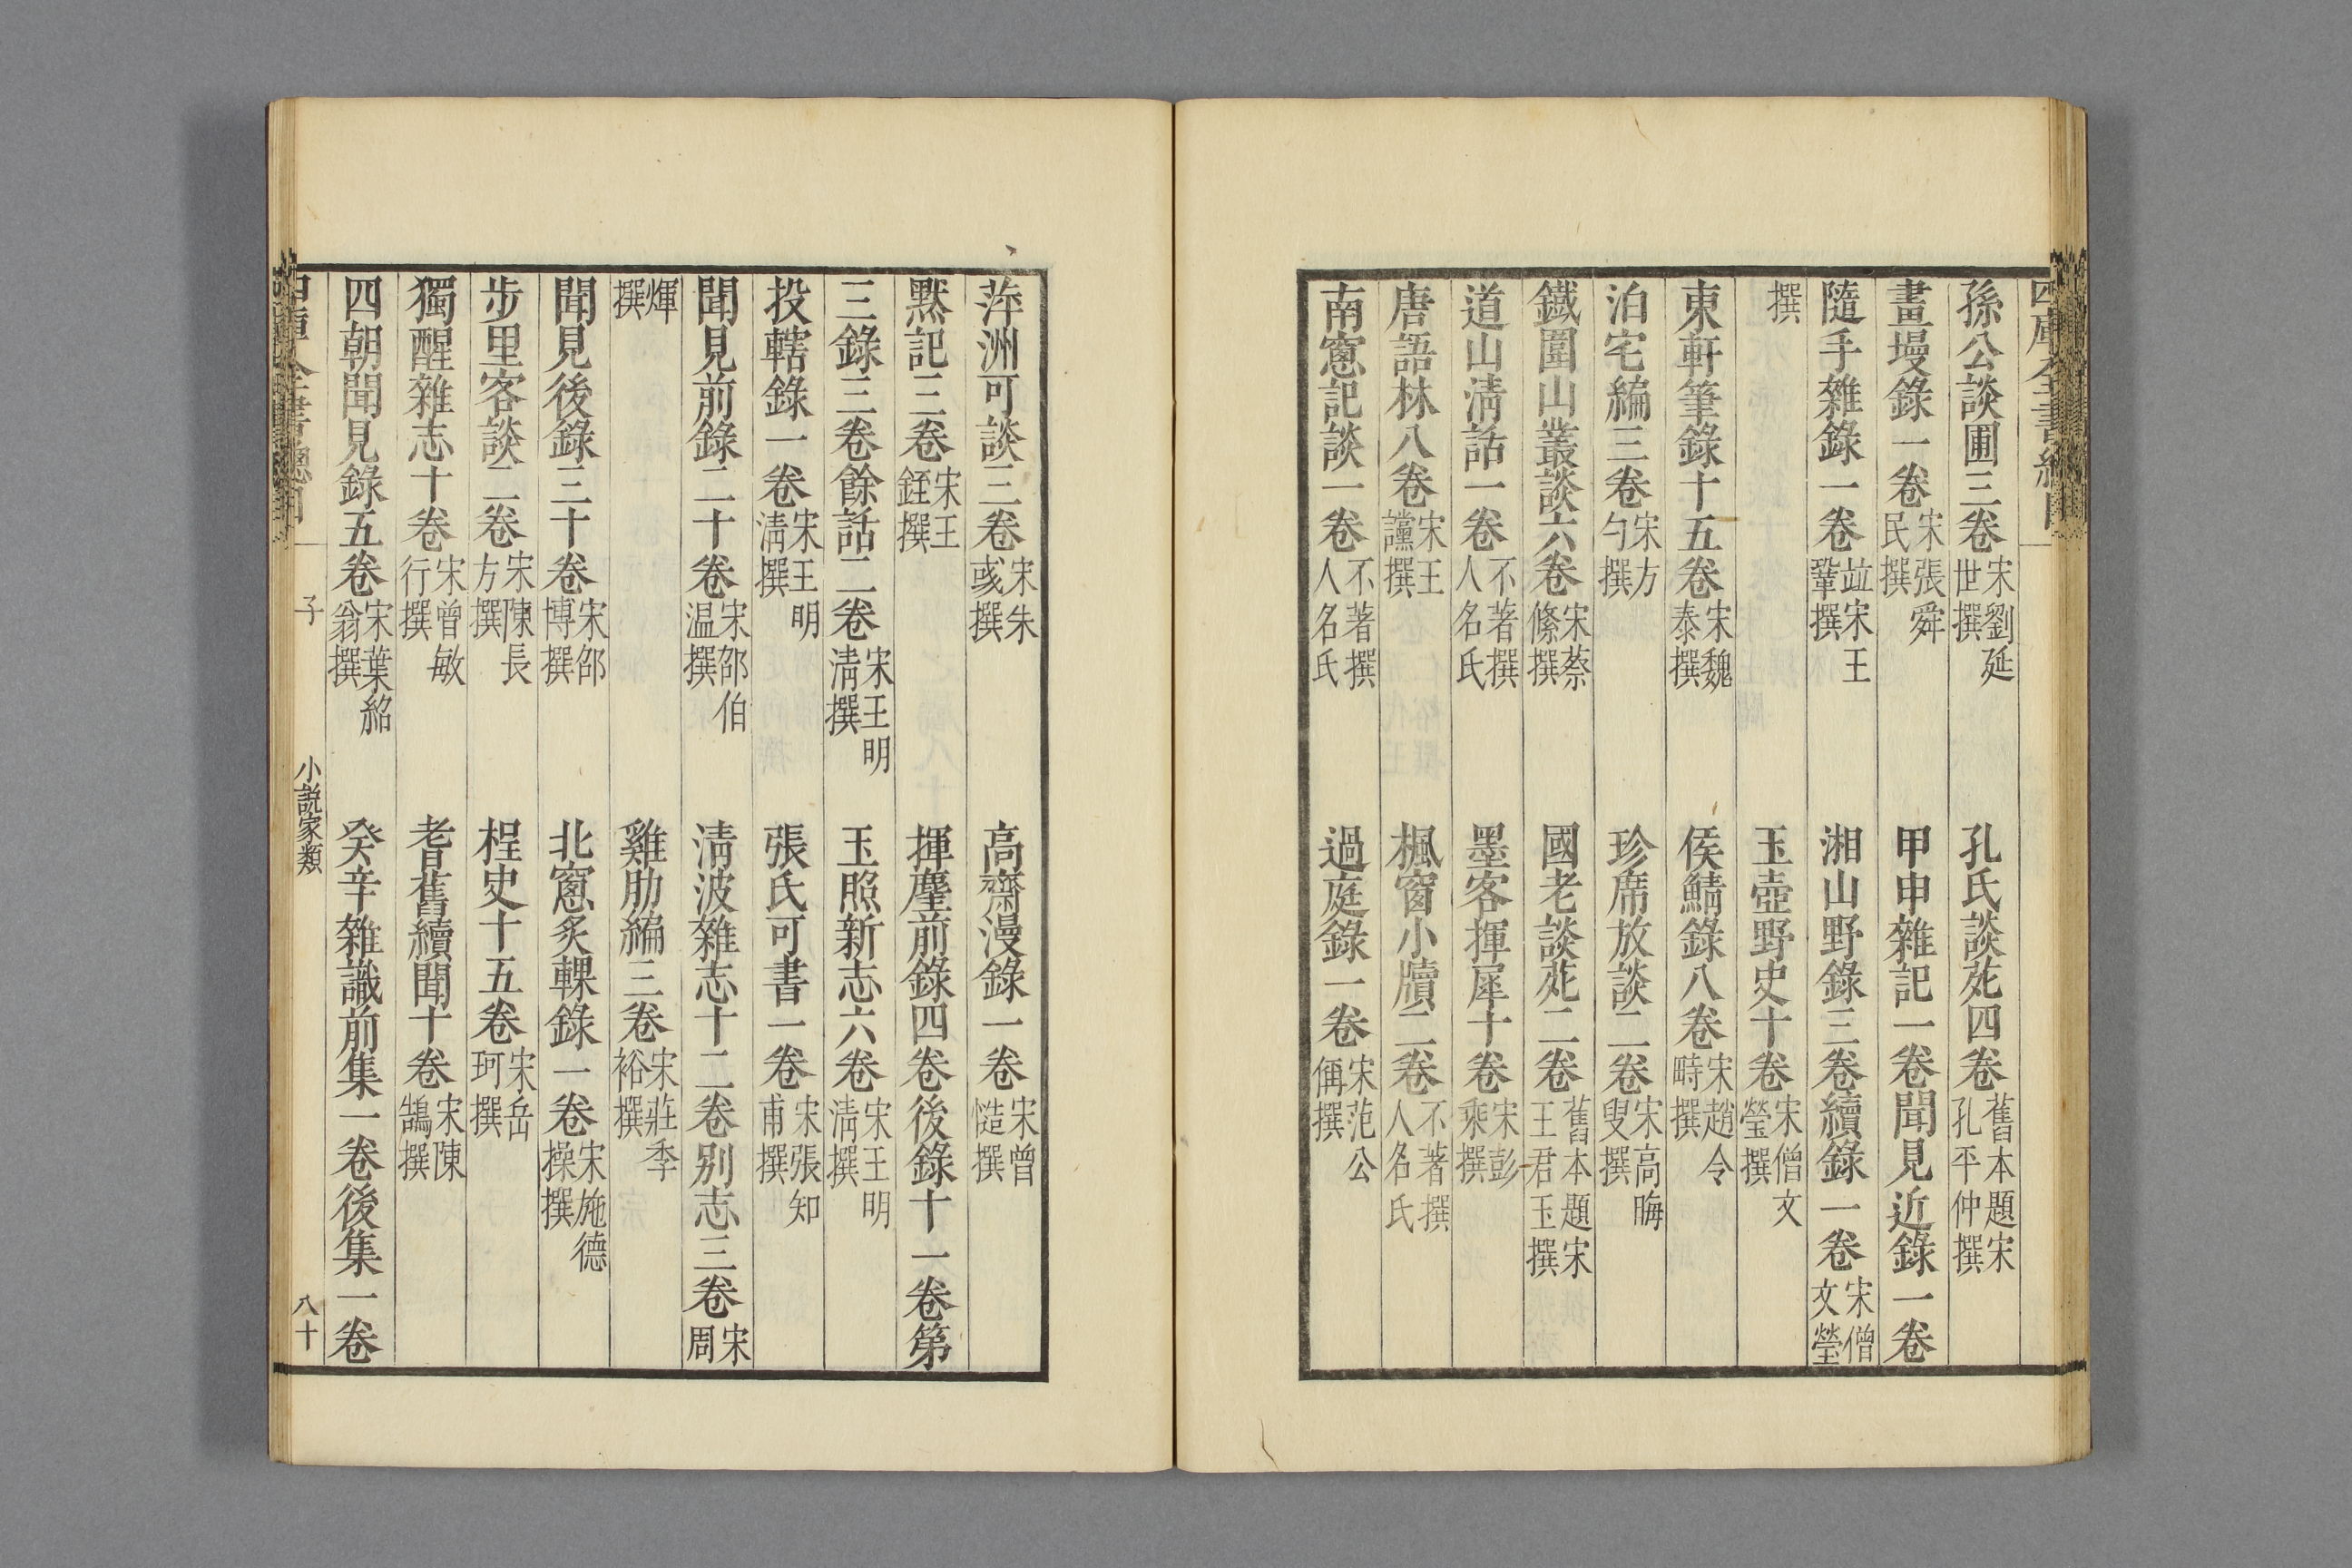 四庫全書總目
孫公談圃三卷宋劉延世撰　孔氏談苑四卷舊本題宋孔平仲撰
畫墁錄一卷宋張舜民撰　甲申雜記一卷聞見近錄一卷
隨手雜錄一卷竝宋王鞏撰　湘山野錄三卷續錄一卷宋僧文瑩
撰　玉壺野史十卷宋僧文瑩撰
東軒筆錄十五卷宋魏泰撰　侯鯖錄八卷宋趙令畤撰
泊宅編三卷宋方勺撰　珍席放談二卷宋高晦叟撰
鐵圍山叢談六卷宋蔡絛撰　國老談苑二卷舊本題宋王君玉撰
道山清話一卷不著撰人名氏　墨客揮犀十卷宋彭乘撰
唐語林八卷宋王讜撰　楓窗小牘二卷不著撰人名氏
南窻記談一卷不著撰人名氏　過庭錄一卷宋范公偁撰
萍洲可談三卷宋朱彧撰　高齋漫錄一卷宋曾慥撰
默記三卷宋王銍撰　揮麈前錄四卷後錄十一卷第
三錄三卷餘話二卷宋王明清撰　玉照新志六卷宋王明清撰
投轄錄一卷宋王明清撰　張氏可書一卷宋張知甫撰
聞見前錄二十卷宋邵伯温撰　清波雜志十二卷別志三卷宋周
煇撰　雞肋編三卷宋莊季裕撰
聞見後錄三十卷宋邵博撰　北窻炙輠錄一卷宋施德操撰
步里客談二卷宋陳長方撰　桯史十五卷宋岳珂撰
獨醒雜志十卷宋曾敏行撰　耆舊續聞十卷宋陳鵠撰
四朝聞見錄五卷宋葉紹翁撰　癸辛雜識前集一卷後集一卷
四庫全書總目　子　小説家類　八十